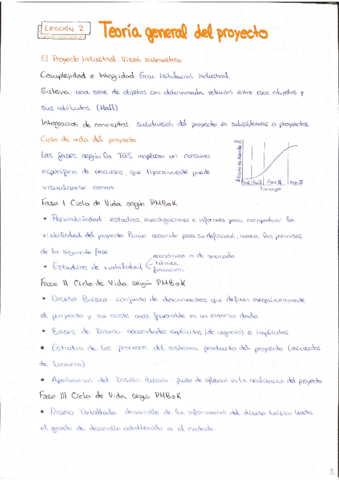 LECCIÓN 2 Teoría general del proyecto
El Proyecto Industrial. Visión sistemática
Complejidad e Integridad Gran Instalación Industrial
Sistema: una serie de objetos con determinada relación entre esos objetos y
sus atributos (Hall)
Integración de conceptos: subdivisión del proyecto en subsistemas o proyectos
Ciclo de vida del proyecto
Las fases según la TGS implican un consumo
específico de recursos, que típicamente puede
visualizarse como:
Fase I Ciclo de Vida según PMBoK
• Previabilidad: estudios, investigaciones e informes para comprobar la
viabilidad del proyecto. Primer escalón para su definición, marca las premisas
de la siguiente fase
• Estudios de viabilidad económica o de mercado
técnica
financiera
Fase II Ciclo de Vida según PMBoK
• Diseño Básico: conjunto de documentos que definen inequívocamente
el proyecto y su coste más favorable en un entorno dado
• Bases de Diseño: necesidades explícitas (de negocio) e implícitas
• Estudio de los procesos del sistema producto del proyecto (acuerdos
de licencia)
• Aprobación del Diseño Básico: punto de inflexión en la realización del proyecto
Fase III Ciclo de Vida según PMBoK
• Diseño Detallado: desarrollo de la información del diseño básico hasta
el grado de desarrollo establecido en el contrato.
3